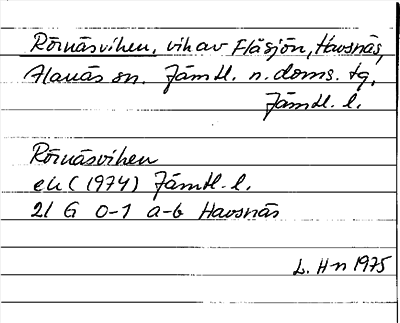 Rörnäsviken, vik av Flåsjön, Havsnäs,
Alanäs sn. Jämtl. n. doms. tg,
Jämtl. l.
Rörnäsviken
ek (1974) Jämtl. l.
21 G 0-1 a-b Havsnäs
L. H-n 1975